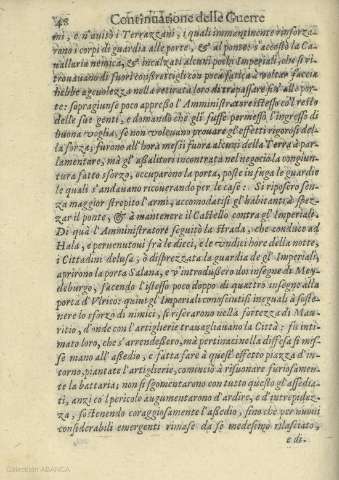 48 Continuatione delle Guerre
ni, e n'auisò i Terrazzani, i quali immantinente rinforza-
rono i corpi di guardia alle porte, & al ponte: s'accostò la Ca-
uallaria nemica, & incalzati alcuni pochi Imperiali, che si ri-
trouauano di fuori constrettigli con poca fatica à voltar faccia
hebbe ageuolezza nella retirata loro di trapassare sin' alle por-
te: sopragiunse poco appresso l'Amministratore istesso col resto
delle sue genti, e domandò che gli fusse permesso l'ingresso di
buona voglia, se non voleuano prouare gl'effetti rigorosi del-
la forza; furono all'hora messi fuora alcuni della Terra à par-
lamentare, ma gl'assalitori incontrata nel negocio la congiun-
tura fatto sforzo, occuparono la porta, poste in fuga le guardie
le quali s'andauano ricouerando per le case: Si riposero sen-
za maggior strepito l'armi, accomodatisi gl'habitanti à spez-
zar il ponte, & à mantenere il Castello contra gl'Imperiali.
Di quà l'Amministratore seguitò la strada, che conduce ad
Hala, e peruenutoui frà le dieci, e le vndici hore della notte,
i Cittadini delusa, ò disprezzata la guardia de gl'Imperiali,
aprirono la porta Salana, e v'introdussero doi insegne di Mey-
deburgo, facendo l'istesso poco doppo di quattro insegne alla
porta d'Vlrico: quini gl'Imperiali conosciutisi ineguali à soste-
nere lo sforzo di nimici, si riserarono nella fortezza di Mau-
ritio, d'onde con l'artiglierie trauagliauano la Città: fù in-
timato loro, che s'arrendessero, ma pertinaci nella diffesa si mis-
se mano all'assedio, e fatta fare à quest'effetto piazza d'in-
torno, piantate l'artiglierie, cominciò à risuonare furiosamen-
te la battaria; non si sgomentarono con tutto questo gl'assedia-
ti, anzi col pericolo augumentarono d'ardire, e d'intrepidez-
za, sostenendo coraggiosamente l'assedio, sino che per nuoui
considerabili emergenti rimase da se medesimo rilasciato,
e di-
Colección ABANCA